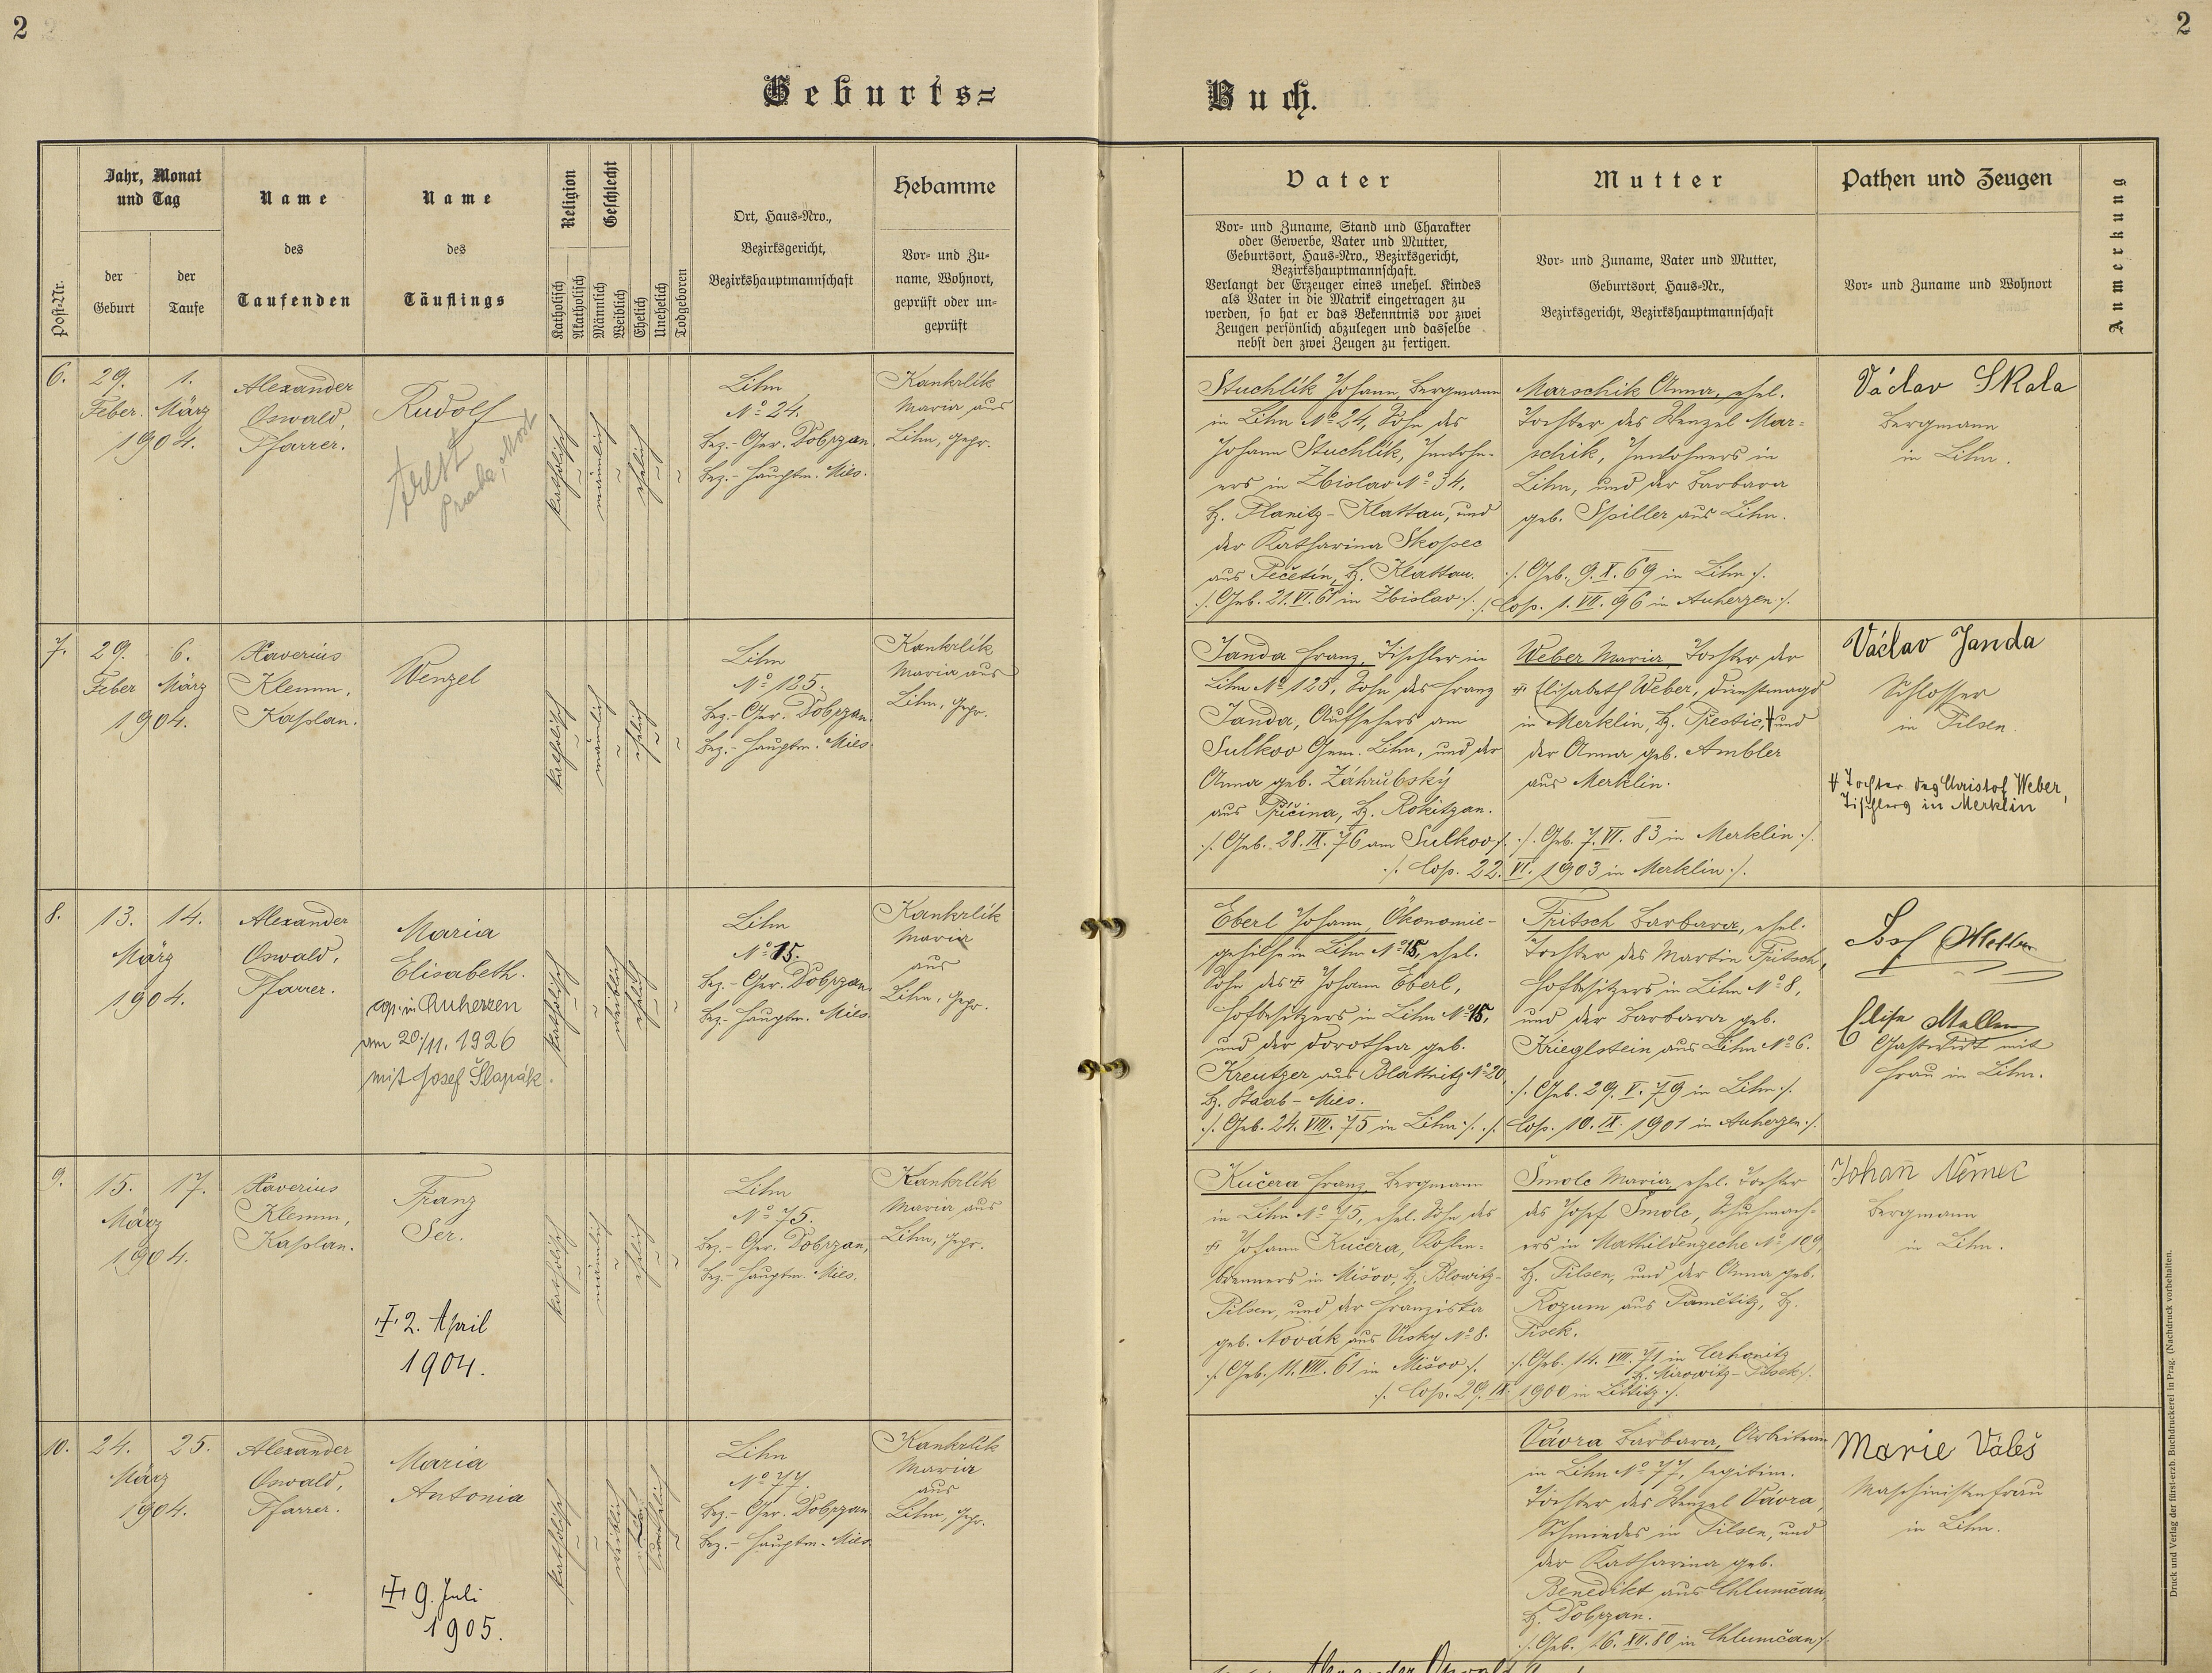 2
2
Geburts=
Buch.
Post-Nr.
Jahr, Monat
und Tag
der
Geburt
der
Taufe
Name
des
Taufenden
Name
des
Täuflings
Religion
Katholisch
Akatholisch
Geschlecht
Männlich
Weiblich
Ehelich
Unehelich
Todgeboren
Ort, Haus-Nro.,
Bezirksgericht,
Bezirkshauptmannschaft
Hebamme
Vor- und Zu-
name, Wohnort,
geprüft oder un-
geprüft
Vater
Vor- und Zuname, Stand und Charakter
oder Gewerbe, Vater und Mutter,
Geburtsort, Haus-Nro., Bezirksgericht,
Bezirkshauptmannschaft.
Verlangt der Erzeuger eines unehel. Kindes
als Vater in die Matrik eingetragen zu
werden, so hat er das Bekenntnis vor zwei
Zeugen persönlich abzulegen und dasselbe
nebst den zwei Zeugen zu fertigen.
Mutter
Vor- und Zuname, Vater und Mutter,
Geburtsort, Haus-Nr.,
Bezirksgericht, Bezirkshauptmannschaft
Pathen und Zeugen
Vor- und Zuname und Wohnort
Anmerkung
6.
29.
Feber.
1.
März
1904.
Alexander
Oswald,
Pfarrer.
Rudolf
trest
Praha,
katholisch
männlich
ehelich
Lihn
No 24.
Bez.-Ger. Dobrzan.
Bez.-Hauptm. Mies.
Kankrlík
Maria aus
Lihn, gepr.
Stuchlík Johann, Bergmann
in Lihn No 24, Sohn des
Johann Stuchlík, Inwohn-
ers in Zbislav No 34,
B. Planitz-Klattau, und
der Katharina Skopec
aus Pečetín, B. Klattau.
./. Geb. 21. VI. 61 in Zbislav ./.
Marschik Anna, ehel.
Tochter des Wenzel Mar=
schik, Inwohners in
Lihn, und der Barbara
geb. Spiller aus Lihn.
./. Geb. 9. X. 69 in Lihn ./.
./. Cop. 1. VII. 96 in Auherzen ./.
Václav Skala
Bergmann
in Lihn.
7.
29.
Feber
6.
März
1904.
Xaverius
Klemm,
Kaplan.
Wenzel
katholisch
männlich
ehelich
Lihn
No 125.
Bez.-Ger. Dobrzan.
Bez.-Hauptm. Mies.
Kankrlík
Maria aus
Lihn, gepr.
Janda Franz, Tischler in
Lihn No 125, Sohn des Franz
Janda, Aufsehers am
Sulkov Gem. Lihn, und der
Anna geb. Záhrubský
aus Příčina, B. Rokitzan.
./. Geb. 28. IX. 76 am Sulkov ./.
Weber Maria, Tochter der
Elisabeth Weber, Dienstmagd
in Merklin, B. Přestic, und
der Anna geb. Ambler
aus Merklin.
./. Geb. 7. VI. 83 in Merklin ./.
./. Cop. 22. VI. 1903 in Merklin ./.
Václav Janda
Schlosser
in Pilsen.
Tochter des Christof Weber,
Tischlers in Merklin
8.
13.
14.
März
1904.
Alexander
Oswald,
Pfarrer.
Maria
Elisabeth.
cop. in Auherzen
am 20/11. 1926
mit Josef Šlapák.
katholisch
weiblich
ehelich
Lihn
No 15.
Bez.-Ger. Dobrzan.
Bez.-Hauptm. Mies.
Kankrlík
Maria
aus
Lihn, gepr.
Eberl Johann, Ökonomie-
gehilfe in Lihn No 15, ehel.
Sohn des ☩ Johann Eberl,
Hofbesitzers in Lihn No 15,
und der Dorothea geb.
Kreutzer aus Blattnitz No 20,
B. Staab-Mies.
./. Geb. 24. VIII. 75 in Lihn ./.
Fritsch Barbara, ehel.
Tochter des Martin Fritsch,
Hofbesitzers in Lihn No 8,
und der Barbara geb.
Krieglstein aus Lihn No 6.
./. Geb. 29. V. 79 in Lihn ./.
./. Cop. 10. IX. 1901 in Auherzen ./.
Elise
Gastwirt mit
Frau in Lihn.
9.
15.
17.
März
1904.
Xaverius
Klemm,
Kaplan.
Franz
Ser.
☩ 2. April
1904.
katholisch
männlich
ehelich
Lihn
No 75.
Bez.-Ger. Dobrzan,
Bez.-Hauptm. Mies.
Kankrlík
Maria aus
Lihn, gepr.
Kučera Franz, Bergmann
in Lihn No 75, ehel. Sohn des
☩ Johann Kučera, Kohlen-
brenners in Mišov, B. Blowitz-
Pilsen, und der Franziska
geb. Novák aus Visky No 8.
./. Geb. 11. VIII. 61 in Mišov ./.
Šmolc Maria, ehel. Tochter
des Josef Šmolc, Schuhmach-
ers in Mathildenzeche No 109,
B. Pilsen, und der Anna geb.
Rozum aus Pamětitz, B.
Pisek.
./. Geb. 14. VIII. 71 in Cerhonitz
B. Mirowitz-Pisek ./.
./. Cop. 29. IX. 1900 in Littitz ./.
Johañ Němec
Bergmann
in Lihn.
10.
24.
25.
März
1904.
Alexander
Oswald,
Pfarrer.
Maria
Antonia
☩ 9. Juli
1905.
katholisch
weiblich
unehelich
Lihn
No 77.
Bez.-Ger. Dobrzan
Bez.-Hauptm. Mies
Kankrlík
Maria
aus
Lihn, gepr.
Vávra Barbara, Arbeiterin
in Lihn No 77, legitim.
Tochter des Wenzel Vávra,
Schmiedes in Pilsen, und
der Katharina geb.
Benedikt aus Chlumčan,
B. Dobrzan.
./. Geb. 16. XII. 80 in Chlumčan ./.
Marie Váleš
Maschinistenfrau
in Lihn.
Alexander Oswald
Druck und Verlag der fürst-erzb. Buchdruckerei in Prag. (Nachdruck vorbehalten.